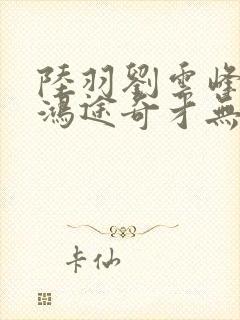 陸羽劉雲峰
鴻途奇才無
卡仙